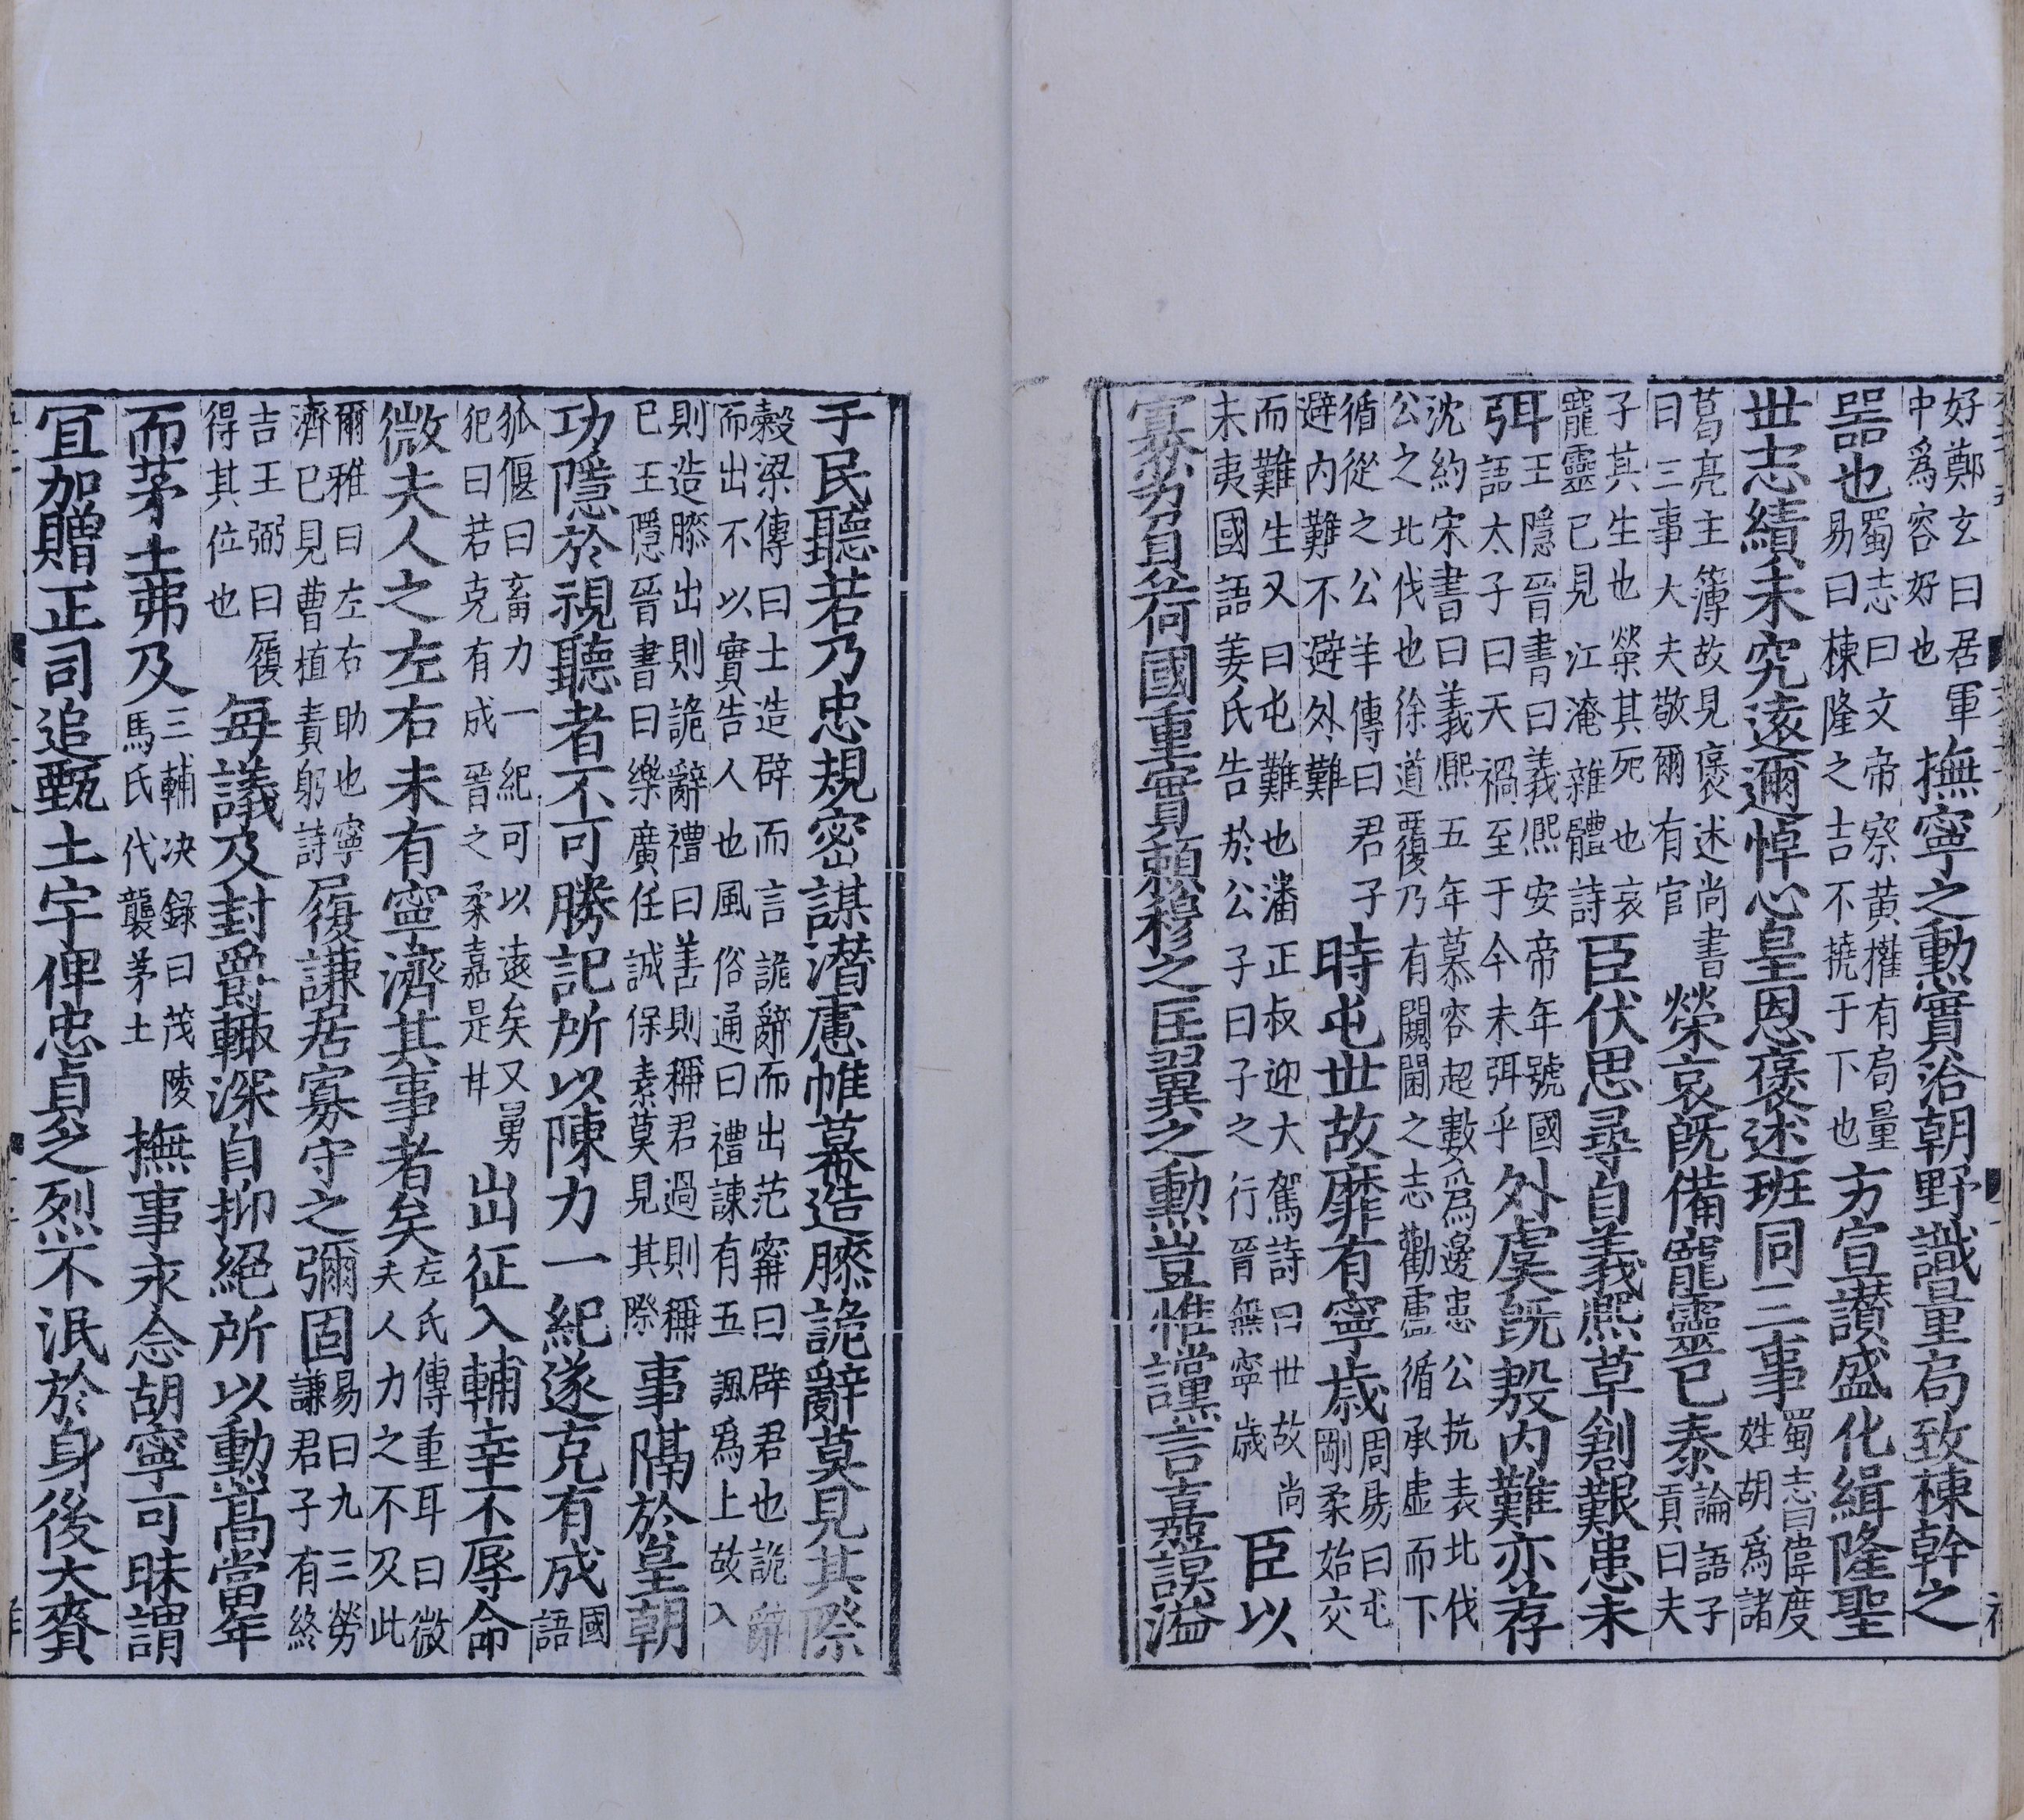 好鄭玄曰居軍中爲容好也撫寧之勳實洽朝野識量局致棟幹之
器也蜀志曰文帝察黄權有局量易曰棟隆之吉不撓于下也方宣讃盛化緝隆聖
世志績未究逺邇悼心皇恩褒述班同三事蜀志曰偉度姓胡爲諸
葛亮主簿故見褒述尚書曰三事大夫敬爾有官榮哀旣備寵靈已泰論語子貢曰夫
子其生也榮其死也哀寵靈已見江淹雜體詩臣伏思尋自義熈草創艱患未
弭王隱晉書曰義熈安帝年號國語太子曰天禍至于今未弭乎外虞旣殷内難亦荐
沈約宋書曰義熈五年慕容超數爲邊患公抗表北伐公之北伐也徐道覆乃有闚閫之志勸盧循承虚而下
循從之公羊傳曰君子避内難不避外難時屯世故靡有寧歳周易曰屯剛柔始交
而難生又曰屯難也潘正叔迎大駕詩曰世故尚未夷國語姜氏告於公子曰子之行晉無寧歳臣以
寡劣負荷國重實頼穆之匡翼之勳豈惟讜言嘉謨溢
于民聽若乃忠規密謀潜慮帷幕造膝詭辭莫見其際
糓梁傳曰士造辟而言詭辭而出范甯曰辟君也詭辭而出不以實告人也風俗通曰禮諫有五諷爲上故入
則造膝出則詭辭禮曰善則稱君過則稱已王隱晉書曰樂廣任誠保素莫見其際事隔於皇朝
功隱於視聽者不可勝記所以陳力一紀遂克有成國語
狐偃曰畜力一紀可以逺矣又舅犯曰若克有成晉之柔嘉是甘出征入輔幸不辱命
微夫人之左右未有寧濟其事者矣左氏傳重耳曰微夫人力之不及此
爾雅曰左右助也寧濟已見曹植責躬詩履謙居寡守之彌固易曰九三勞謙君子有終
吉王弼曰履得其位也每議及封爵輙深自抑絕所以勳高當年
而茅土弗及三輔决録曰茂陵馬氏代襲茅土撫事永念胡寧可昧謂
冝加贈正司追甄土宇俾忠貞之烈不泯於身後大賚